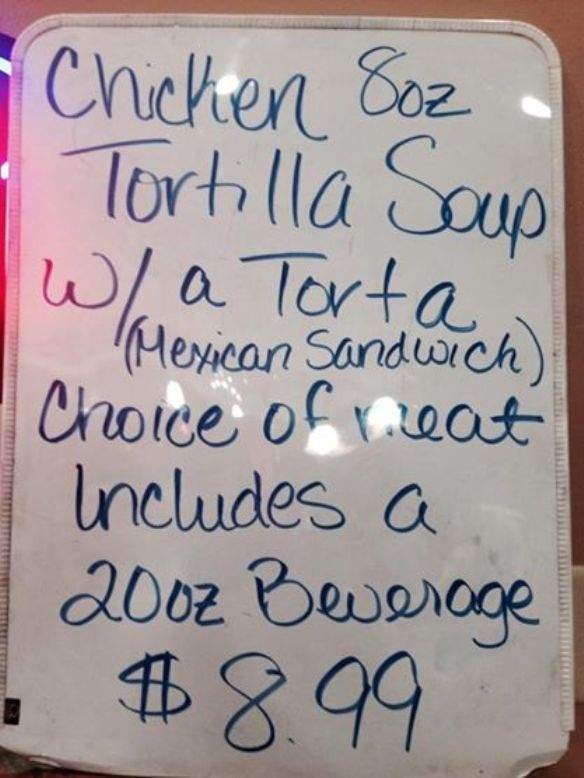 Chicken 8oz
Tortilla Soup
w/ a Torta
(Mexican Sandwich)
Choice of meat
Includes a
20oz Beverage
$8.99